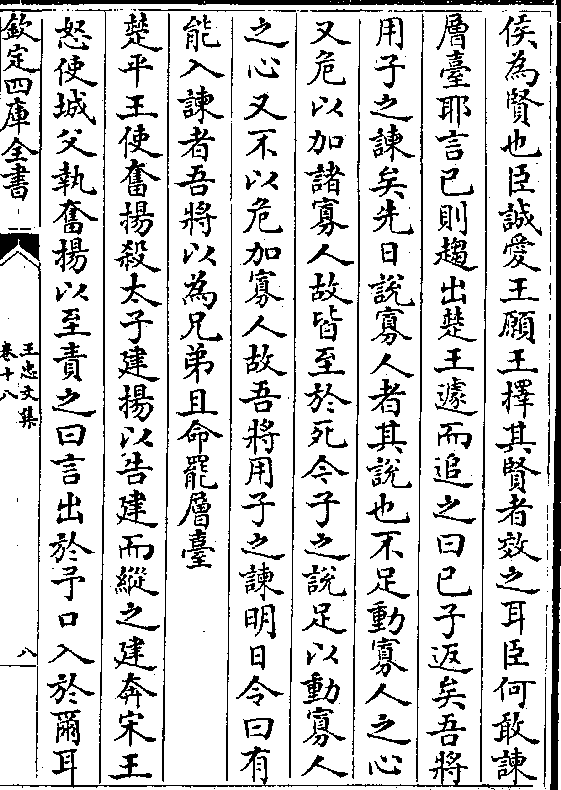 侯為賢也臣誠愛王願王擇其賢者效之耳臣何敢諫
層臺耶言已則趨出楚王遽而追之曰已子返矣吾將
用子之諫矣先日說寡人者其說也不足動寡人之心
又危以加諸寡人故皆至於死今子之說足以動寡人
之心又不以危加寡人故吾將用子之諫明日令曰有
能入諫者吾將以為兄弟且命罷層臺
楚平王使奮揚殺太子建揚以告建而縱之建奔宋王
怒使城父執奮揚以至責之曰言出於予口入於爾耳
欽定四庫全書
王忠文集
卷十八
八